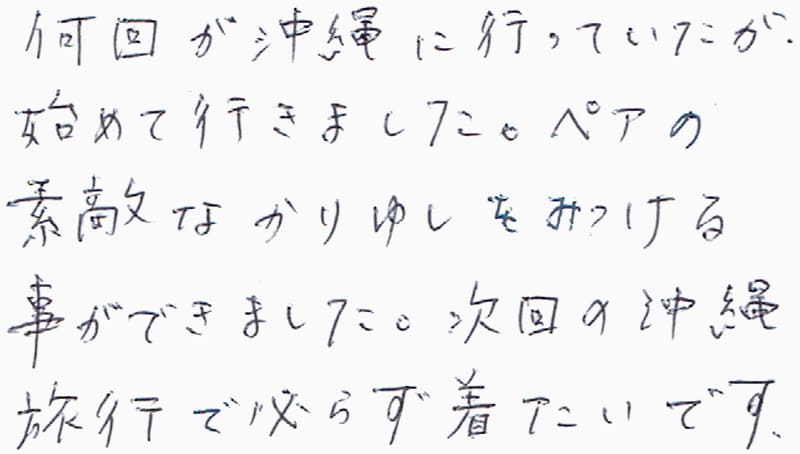 何回が沖縄に行っていたが、
始めて行きました。ペアの
素敵なかりゆしをみつける
事ができました。次回の沖縄
旅行で必らず着たいです、